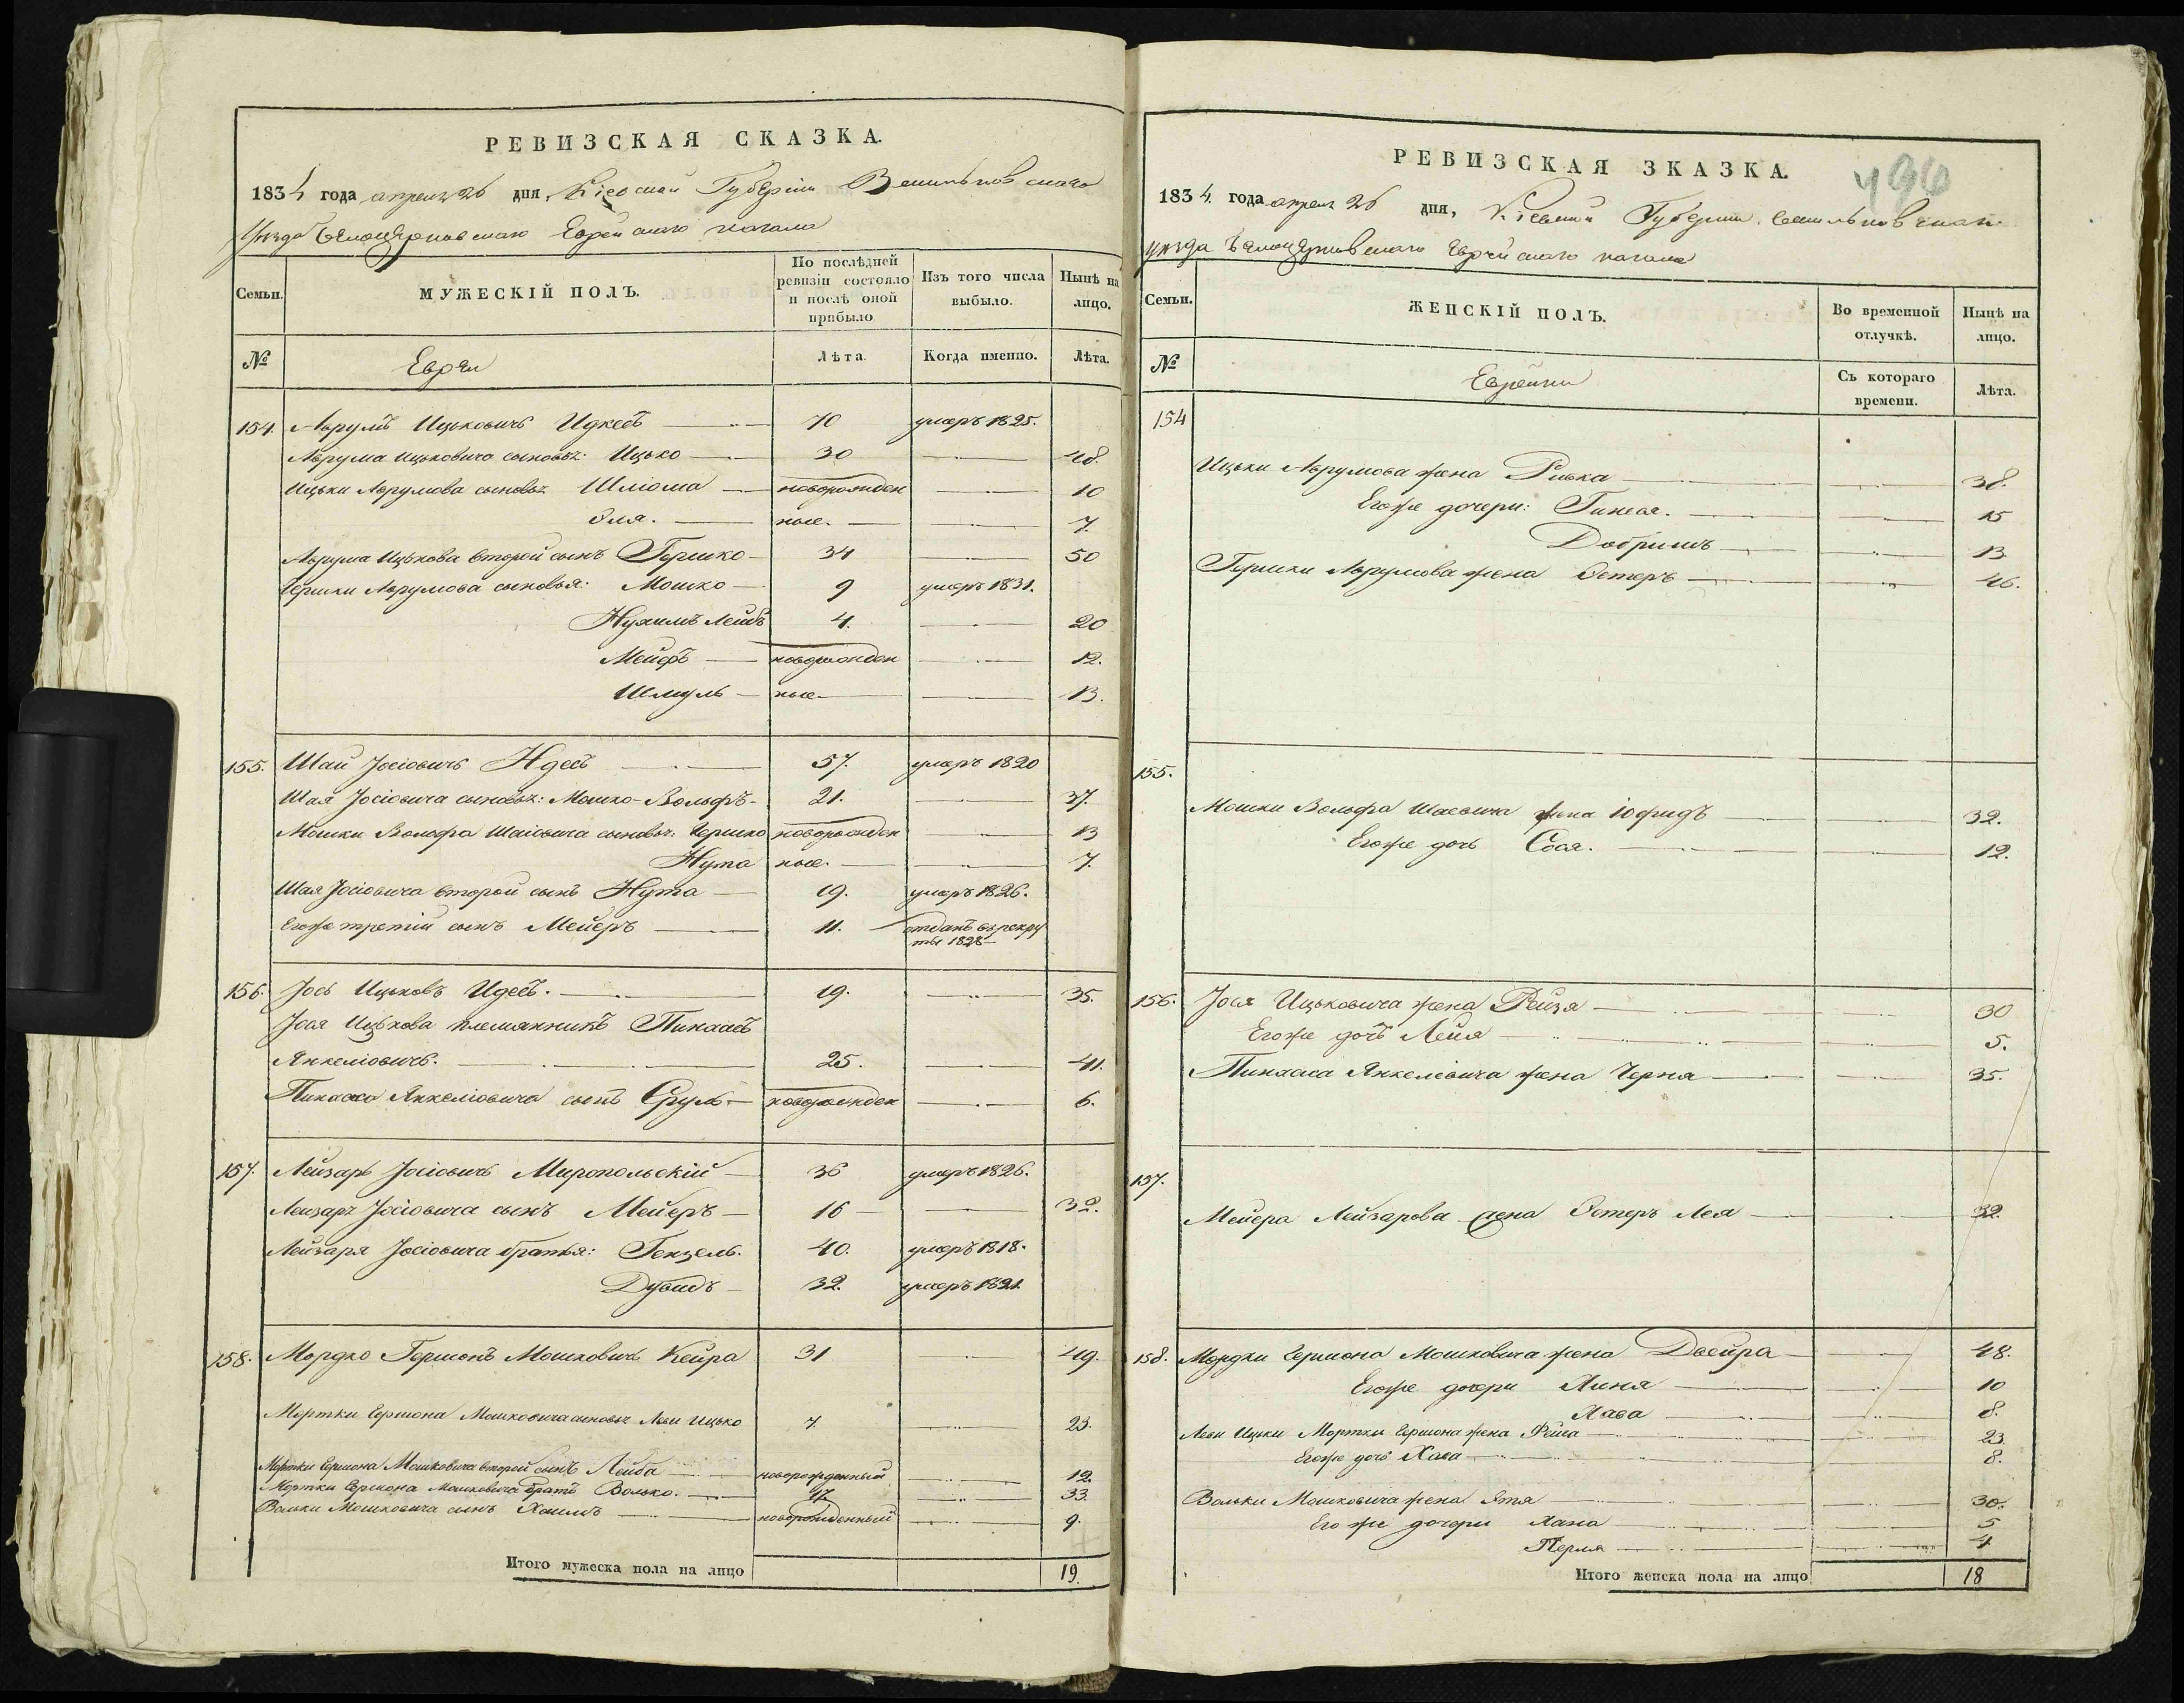 РЕВИЗСКАЯ СКАЗКА.
1834 года апреля 26 дня, Кіевской Губерніи Василькѡвскаго
уѣзда Бѣлоцерковскаго Еврейскаго кагала
Семьи.
МУЖЕСКІЙ ПОЛЪ.
По послѣдней ревизіи состояло и послѣ оной прибыло
Изъ того числа выбыло.
Нынѣ на лицо.
№
Евреи
Лѣта.
Когда именно.
Лѣта.
154. Аврумъ Ицьковичь 70 умеръ 1825.
Аврума Ицьковича сыновья: Ицько 30 48.
Ицьки Аврумова сыновья Шліома новорожден 10
Эля. ные. 7.
Аврума Ицькова второй сынъ Гершко 34 50
Гершки Аврумова сыновья: Мошко 9 умеръ 1831.
Нухимъ Лейбъ 4. 20
Мейеръ новорожден 12.
Шмуль ные 13.
155. Шая Іосіовичь Идесъ 57. умеръ 1820
Шая Іосіовича сыновья: Мошко-Вольфъ 21. 37.
Мошки Вольфа Шаіовича сыновья: Гершко новорожден 13
Нута ные. 7.
Шая Іосіовича второй сынъ Нута 19. умеръ 1826.
Егоже третій сынъ Мейеръ 11. отданъ въ рекру
ты 1828
156. Іось Ицьковъ Идесъ. 19. 35.
Іося Ицькова племянникъ Пинхасъ
Янкеліовичь. 25. 41.
Пинхаса Янкеліовича сынъ Сруль новорожден 6.
157. Лейзаръ Іосіовичь Миропольскій 36 умеръ 1826.
Лейзаря Іосіовича сынъ Мейеръ 16 32.
Лейзаря Іосіовича братья: Гензель. 40. умеръ 1818.
Дувидъ 32. умеръ 1821.
158. Мордко Гершонъ Мошковичь Кейра 31 49.
Мортки Гершона Мошковича сыновья Леви Ицько 7. 23.
Мортки Гершона Мошковича второй сынъ Лейба новорожденный 12.
Мортки Гершона Мошковича братъ Волько. 17. 33.
Вольки Мошковича сынъ Хаимъ новорожденный 9.
Итого мужеска пола на лицо 19.
РЕВИЗСКАЯ ЗКАЗКА.
496
1834. года апреля 26 дня, Кіевской Губерніи, Васильковскаго
уѣзда Бѣлоцерковскаго Еврейскаго кагала
Семьи.
ЖЕНСКІЙ ПОЛЪ.
Во временной отлучкѣ.
Нынѣ на лицо.
№
Еврейки
Съ котораго времени.
Лѣта.
154
Ицьки Аврумова жена Ривка 38.
Егоже дочери: 15
Добришъ 13.
Гершки Аврумова жена Эстеръ 46.
155.
Мошки Вольфа Шаевича жена Юфидъ 32.
Егоже дочь Сося. 12.
156. Іося Ицьковича жена Рейзя 30
Егоже дочь Лейя 5.
Пинхаса Янкеліовича жена Черня 35.
157.
Мейера Лейзарова жена Эстеръ Лея 32.
158. Мордки Гершона Мошковича жена Двейра 48.
Егоже дочери Хиня 10
Хава 8.
Леви Ицьки Мортки Гершона жена Фейга 23.
Егоже дочь Хава 8.
Вольки Мошковича жена Этя 30.
Егоже дочери Хана 5
Перля 4
Итого женска пола на лицо 18